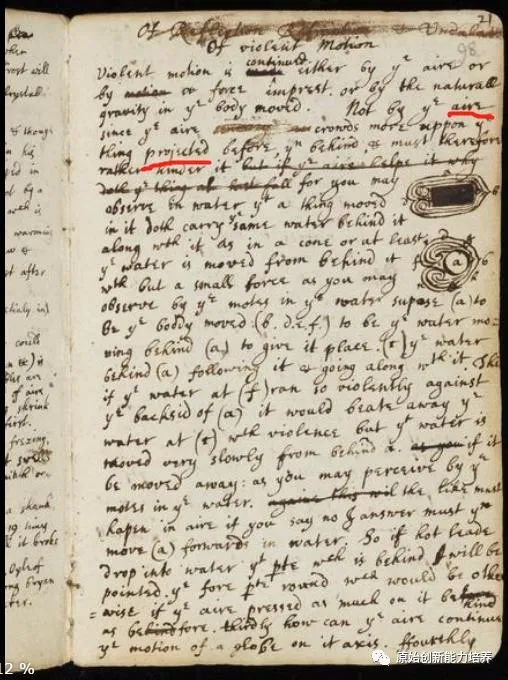 21
Of Reflection & Undulation
98
Of violent Motion
Violent motion is made continued either by yᵉ aire or
by motion or force imprest, or by the naturall
gravity in yᵉ body moved. Not by yᵉ aire
since yᵉ aire crowds more uppon yᵉ
thing projected before yⁿ behind & must therefore
rather hinder it but if yᵉ aire helps it why
doth yᵉ thing at last fall for you may
observe in water yᵗ a thing moved
in it doth carry yᵉ same water behind it
along wᵗʰ it as in a cone or at least
yᵉ water is moved from behind it
wᵗʰ but a small force as you may
observe by yᵉ motes in yᵉ water supose (a) to
be yᵉ boddy moved (b. d. e. f.) to be yᵉ water mo-
ving behind (a) to give it place. (r) yᵉ water
behind (a) following it & going along wᵗʰ it
if yᵉ water at (f) ran so violently against
yᵉ backsid of (a) it would beate away yᵉ
water at (r) wᵗʰ violence but yᵗ water is
moved very slowly from behind a. as you if it
be moved away: as you may perceive by yᵉ
motes in yᵉ water. againe this wil the like must
hapen in aire if you say no I answer must yⁿ
move (a) forwards in water. So if hot leade
drop into water yᵗ pᵗᵉ wᶜʰ is behind will be
pointed. yᵉ fore pᵗᵉ round wᶜʰ would be other
=wise if yᵉ aire pressed as much on it before hind
as behind fore. thirdly how can yᵉ aire continue
yᵉ motion of a globe on it axis. ffourthly
b
a
frost will
in his
ped in
warmin
after
cords
of aire
shrink
first.
frezing.
it broke
12 %
原始创新能力培养